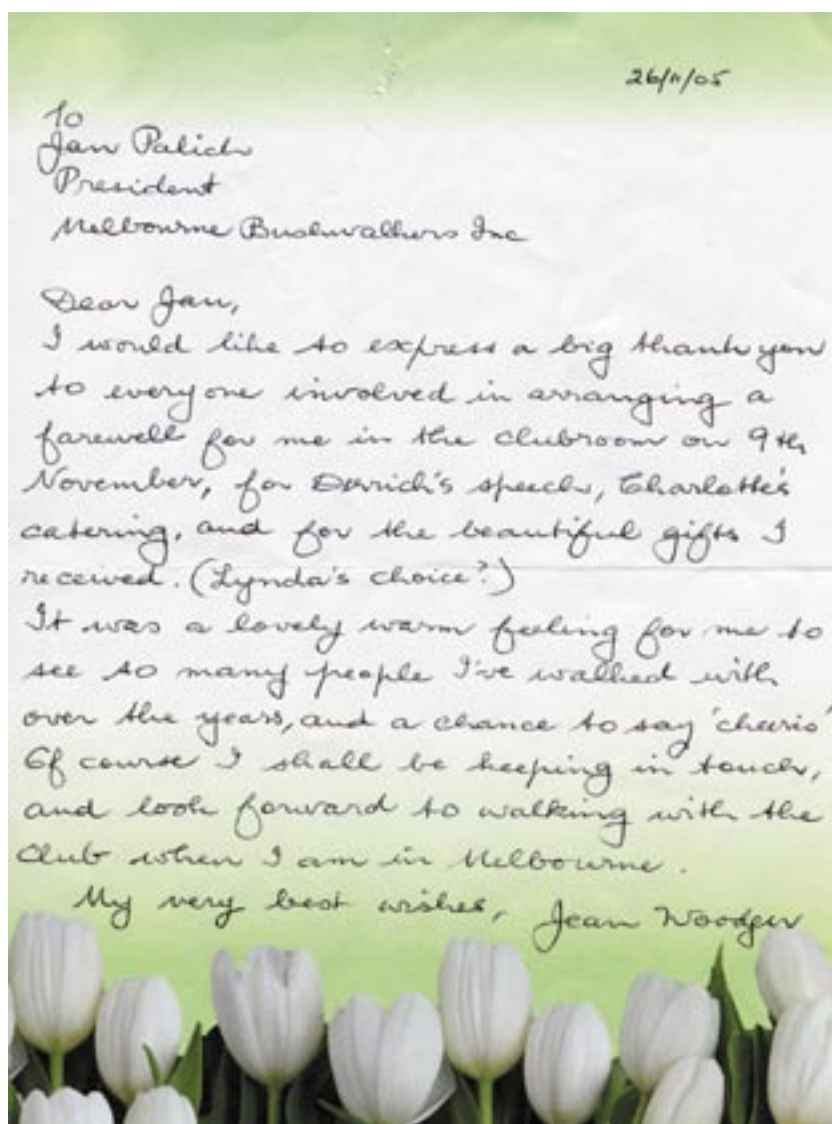 26/11/05
To
Jan Palich
President
Melbourne Bushwalkers Inc
Dear Jan,
I would like to express a big thank you
to everyone involved in arranging a
farewell for me in the clubroom on 9th
November, for Derrick's speech, Charlotte's
catering, and for the beautiful gifts I
received. (Lynda's choice?)
It was a lovely warm feeling for me to
see so many people I've walked with
over the years, and a chance to say 'cheerio'
Of course I shall be keeping in touch,
and look forward to walking with the
Club when I am in Melbourne.
My very best wishes, Jean Woodger